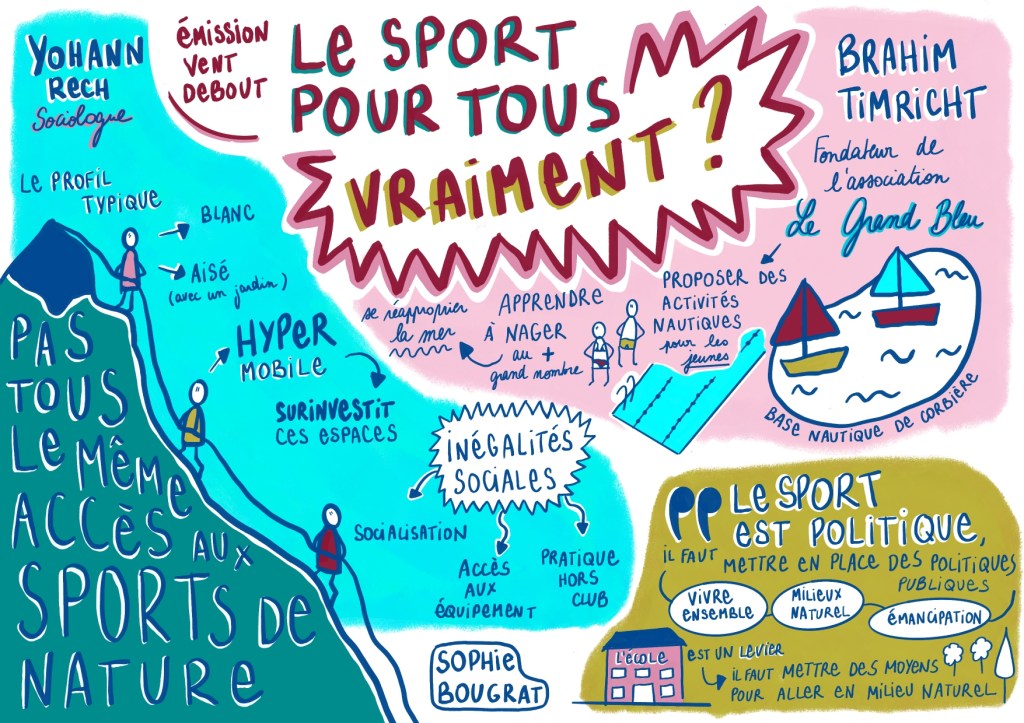 YOHANN
RECH
Sociologue
ÉMISSION
VENT
DEBOUT
LE SPORT
POUR TOUS
VRAIMENT ?
BRAHIM
TIMRICHT
Fondateur de
l'association
Le Grand Bleu
LE PROFIL
TYPIQUE
BLANC
AISÉ
(avec un jardin)
HYPER
MOBILE
SURINVESTIT
CES ESPACES
PAS
TOUS
LE MÊME
ACCÈS AUX
SPORTS DE
NATURE
INÉGALITÉS
SOCIALES
SOCIALISATION
ACCÈS
AUX
ÉQUIPEMENT
PRATIQUE
HORS
CLUB
PROPOSER DES
ACTIVITÉS
NAUTIQUES
pour les
jeunes
APPRENDRE
À NAGER
au +
grand nombre
se réapproprier
la mer
BASE NAUTIQUE DE CORBIÈRE
LE SPORT
EST POLITIQUE,
IL FAUT METTRE EN PLACE DES POLITIQUES
PUBLIQUES
VIVRE
ENSEMBLE
MILIEUX
NATUREL
ÉMANCIPATION
L'ÉCOLE
EST UN LEVIER
IL FAUT METTRE DES MOYENS
POUR ALLER EN MILIEU NATUREL
SOPHIE
BOUGRAT